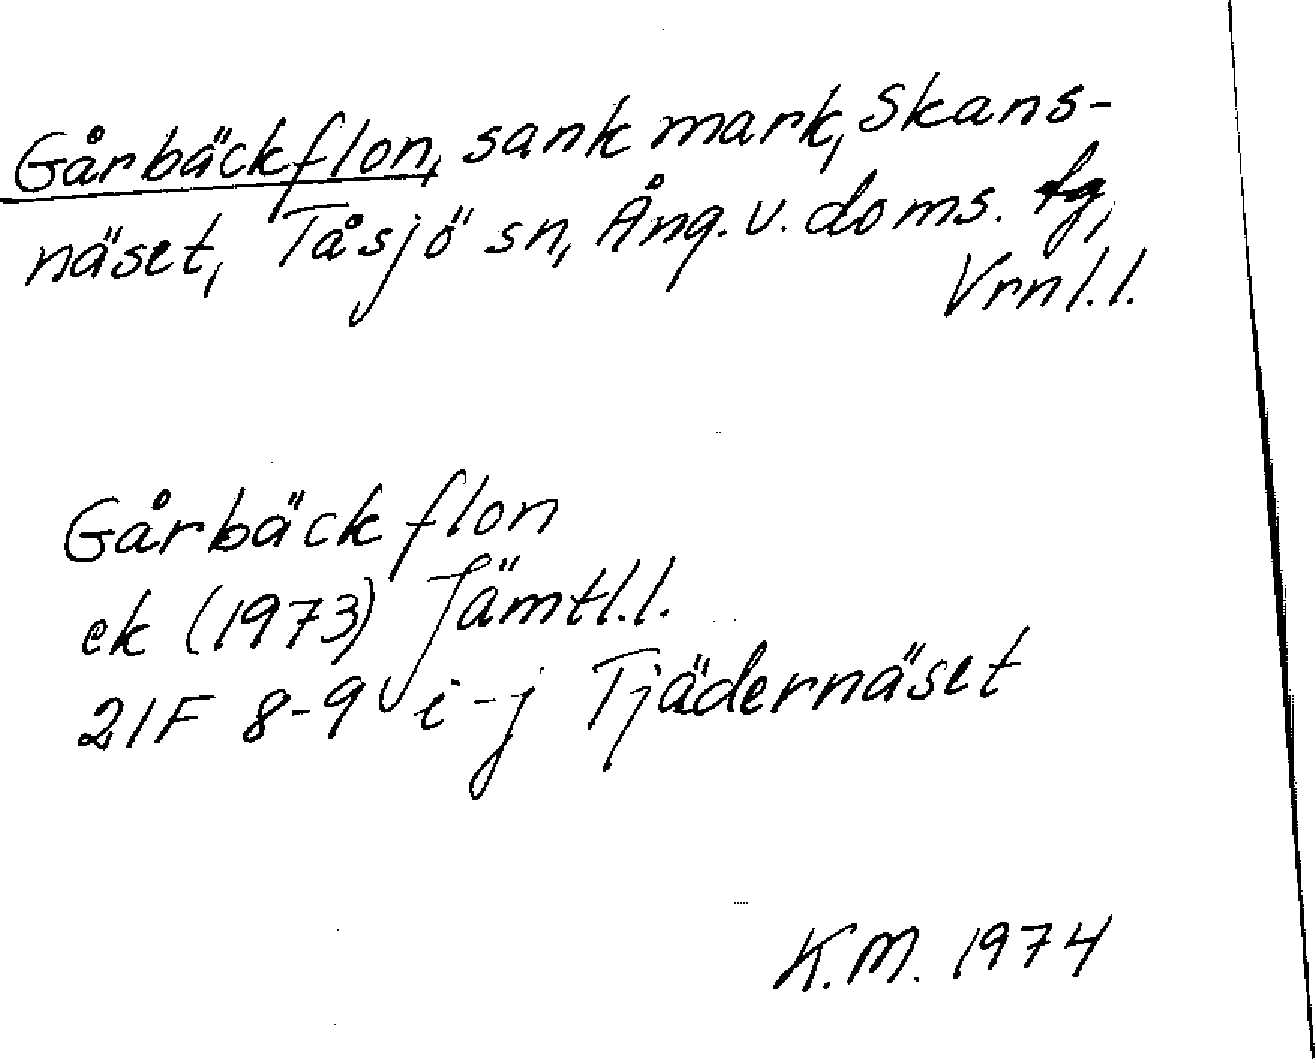 Gårbäckflon, sank mark, Skans-
näset, Tåsjö sn, Ång. v. doms. fg,
Vrnl. l.
Gårbäckflon
ek (1973) Jämtl. l.
21F 8-9 i-j Tjädernäset
K.M. 1974